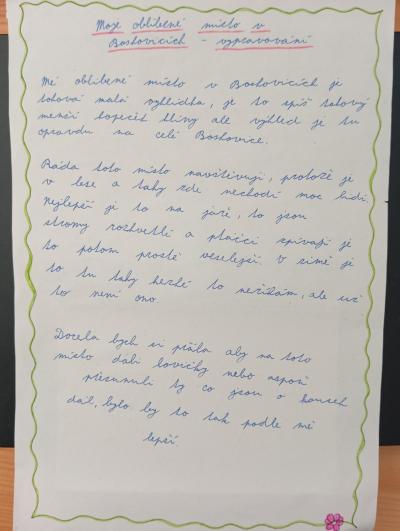 Moje oblíbené místo v
Boskovicích - vypravování
Mé oblíbené místo v Boskovicích je
taková malá vyhlídka, je to spíš takový
menší kopeček hlíny ale výhled je tu
opravdu na celé Boskovice.
Ráda toto místo navštěvuji, protože je
v lese a taky zde nechodí moc lidí.
Nejlepší je to na jaře, to jsou
stromy rozkvetlé a ptáčci zpívají je
to potom prostě veselejší. V zimě je
to tu taky hezké to neříkám, ale už
to není ono.
Docela bych si přála aby na toto
místo dali lavičky nebo aspoň
přesunuli ty co jsou o kousek
dál, bylo by to tak podle mě
lepší.